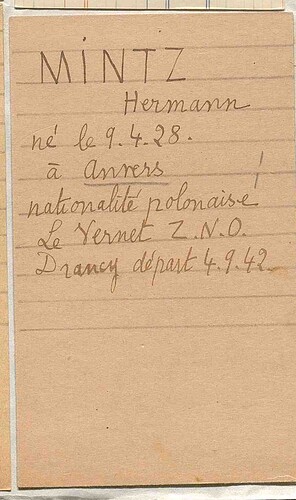 MINTZ
Hermann
né le 9.4.28.
à Anvers
nationalité polonaise
Le Vernet Z.N.O.
Drancy départ 4.9.42